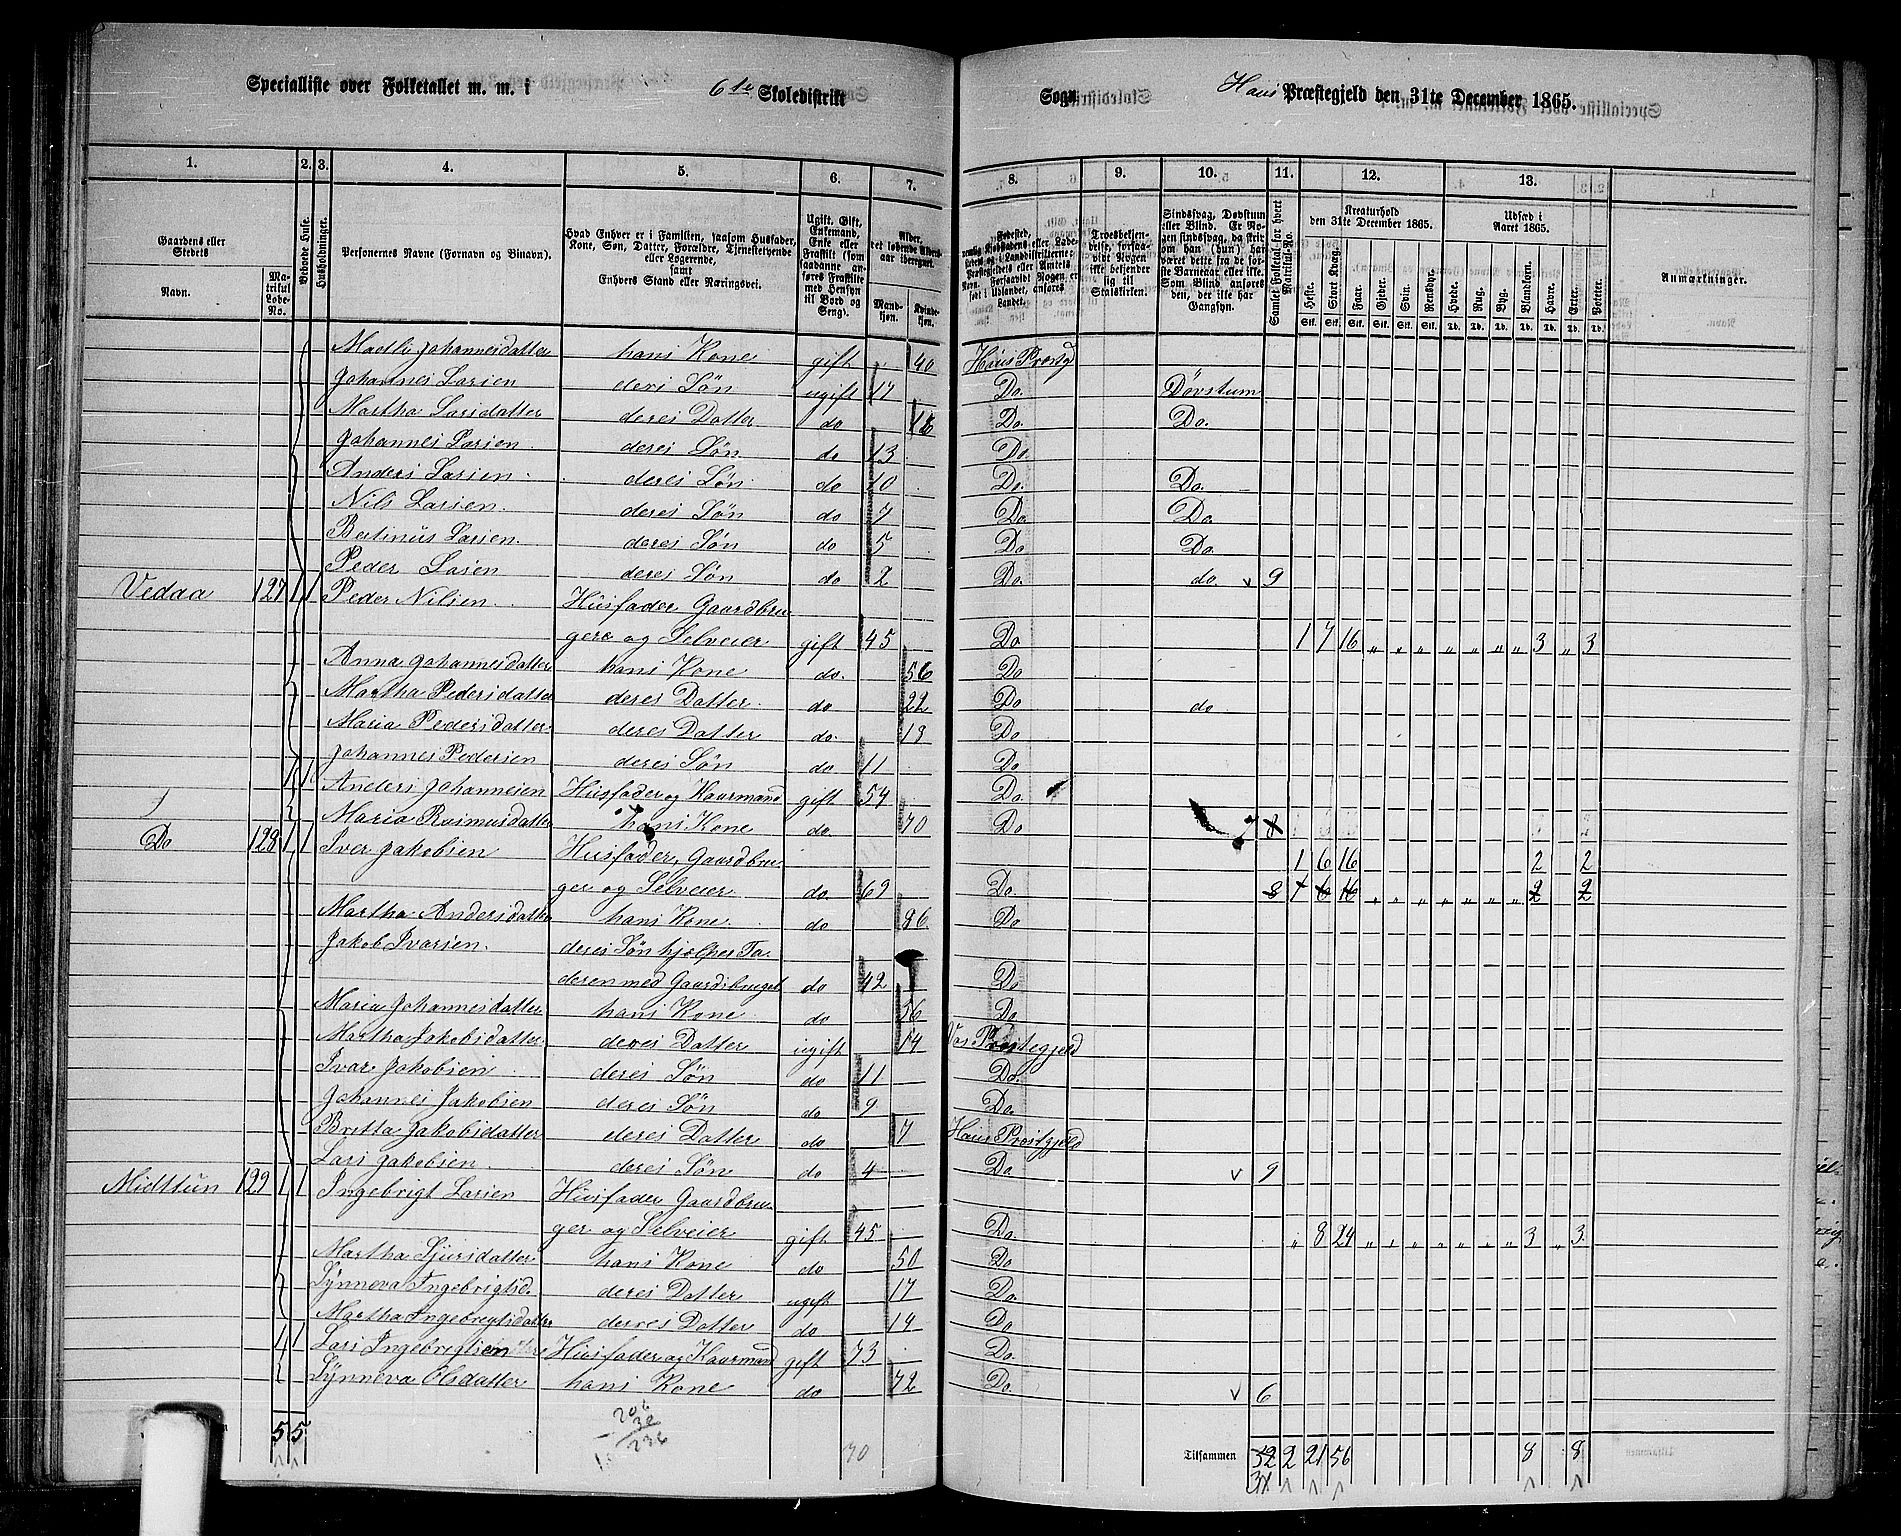 Specialliste over Folketallet m. m. i 6te Skoledistrikt Sogn Haus Præstegjeld den 31te December 1865.
1. 2. 3. 4. 5. 6. 7. 8. 9. 10. 11. 12. 13.
Gaardens eller Stedets
Navn. Matrikul Løbe-No.
Beboede Huse.
Husholdninger.
Personernes Navne (Fornavn og Binavn).
Hvad Enhver er i Familien, saasom Husfader, Kone, Søn, Datter, Forældre, Tjenestetyende eller Logerende, samt Enhvers Stand eller Næringsvei.
Mandkjøn. Kvindekjøn.
Kreaturhold den 31te December 1865.
Udsæd i Aaret 1865.
Anmærkninger.
Heste. Stort Kvæg. Faar. Gjeder. Svin. Rensdyr. Hvede. Rug. Byg. Blandkorn. Havre. Erter. Poteter.
Maetli Johannesdatter hans Kone gift 40 Haus Præstg
Johannes Larsen deres Søn ugift 17 Do. Døvstum
Martha Larsdatter deres Datter do Do. Do.
Johannes Larsen deres Søn do 13 Do.
Anders Larsen deres Søn do 10 Do. Do.
Nils Larsen. deres Søn do 7 Do Do.
Bertinus Larsen. deres Søn do 5 Do Do.
Peder Larsen deres Søn do 2 Do. do v 9
Vedaa 127 1 1 Peder Nilsen Husfader Gaardbru
gere og Selveier gift 45 Do 1 7 16 „ „ „ „ „ „ 3 „ 3
Anna Johannesdatter hans Kone do. 56 Do
Martha Pedersdatter deres Datter do 22 Do do
Maria Pedersdatter deres Datter do. 18 Do
Johannes Pedersen deres Søn do 11 Do
1 1 Anders Johannesen Husfader og Kaarmand gift 54 Do
Maria Rasmusdatter hans Kone do 70 Do 7 8
Do 128 1 1 Iver Jakobsen Husfader, Gaardbru 1 6 16 2 2
ger og Selveier do. 69 Do 8 1 6 16 „ „ „ „ „ „ „ 2 „ 2
Martha Andersdatter hans Kone do 86 Do
Jakob Ivarsen. deres Søn hjelper Fa
deren med Gaardsbruget do 42 Do
Maria Johannesdatter hans Kone do 56 Do
Martha Jakobsdatter deres Datter ugift 14 Vos Præstegjeld
Ivar Jakobsen deres Søn do 11 Do.
Johannes Jakobsen deres Søn do 9 Do.
Britta Jakobsdatter deres Datter do 7 Haus Præstgjeld
Lars Jakobsen deres Søn do 4 Do v 9
Midttun 129 1 1 Ingebrigt Larsen Husfader Gaardbru
ger og Selveier gift 45 Do „ 8 24 „ „ „ „ „ „ 3 „ 3
Martha Sjursdatter hans Kone do 50 Do
Synneva Ingebrigtsd. deres Datter ugift 17 Do
Martha Ingebregtsdatter deres Datter do 14 Do
1 1 Lars Ingebrigtsen Husfader og Kaarmand gift 73 Do.
Synneva Olsdatter hans Kone do 72 Do v 6
5 5 206
30
236 70 Tilsammen 32 2 21 56 8 8